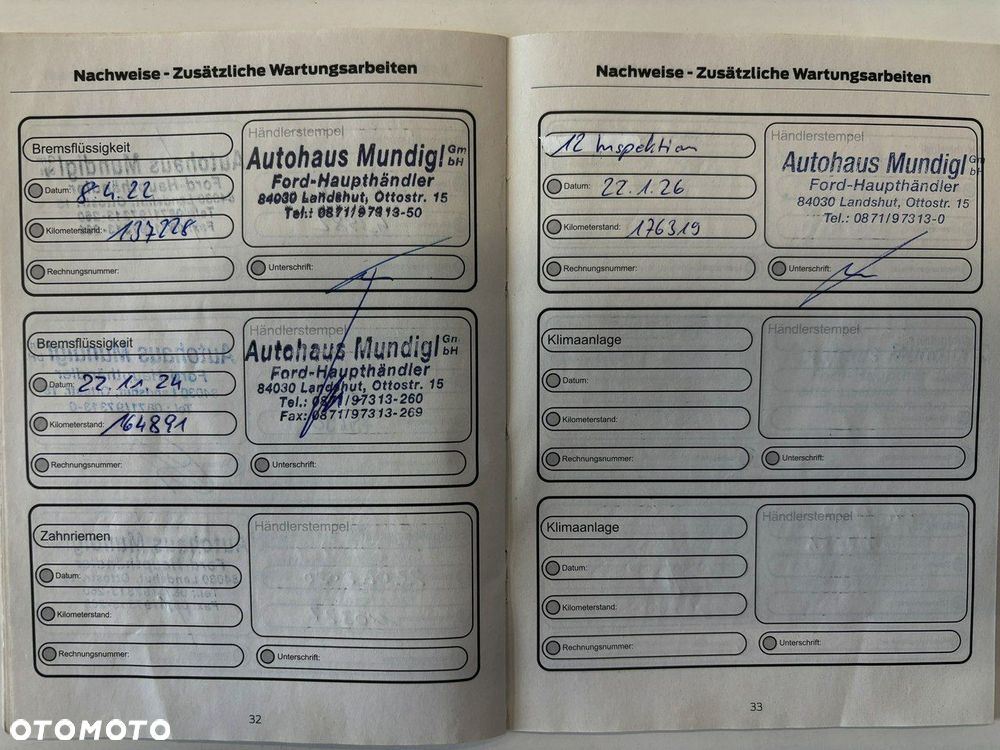 Nachweise - Zusätzliche Wartungsarbeiten
Bremsflüssigkeit
Datum: 8.4.22
Kilometerstand: 137228
Rechnungsnummer:
Händlerstempel
Autohaus Mundigl GmbH
Ford-Haupthändler
84030 Landshut, Ottostr. 15
Tel.: 0871/97313-50
Unterschrift:
Bremsflüssigkeit
Datum: 22.11.24
Kilometerstand: 164891
Rechnungsnummer:
Händlerstempel
Autohaus Mundigl GmbH
Ford-Haupthändler
84030 Landshut, Ottostr. 15
Tel.: 0871/97313-260
Fax: 0871/97313-269
Unterschrift:
Zahnriemen
Datum:
Kilometerstand:
Rechnungsnummer:
Händlerstempel
Unterschrift:
32
Nachweise - Zusätzliche Wartungsarbeiten
12 Inspektion
Datum: 22.1.26
Kilometerstand: 176319
Rechnungsnummer:
Händlerstempel
Autohaus Mundigl GmbH
Ford-Haupthändler
84030 Landshut, Ottostr. 15
Tel.: 0871/97313-0
Unterschrift:
Klimaanlage
Datum:
Kilometerstand:
Rechnungsnummer:
Händlerstempel
Unterschrift:
Klimaanlage
Datum:
Kilometerstand:
Rechnungsnummer:
Händlerstempel
Unterschrift:
33
OTOMOTO